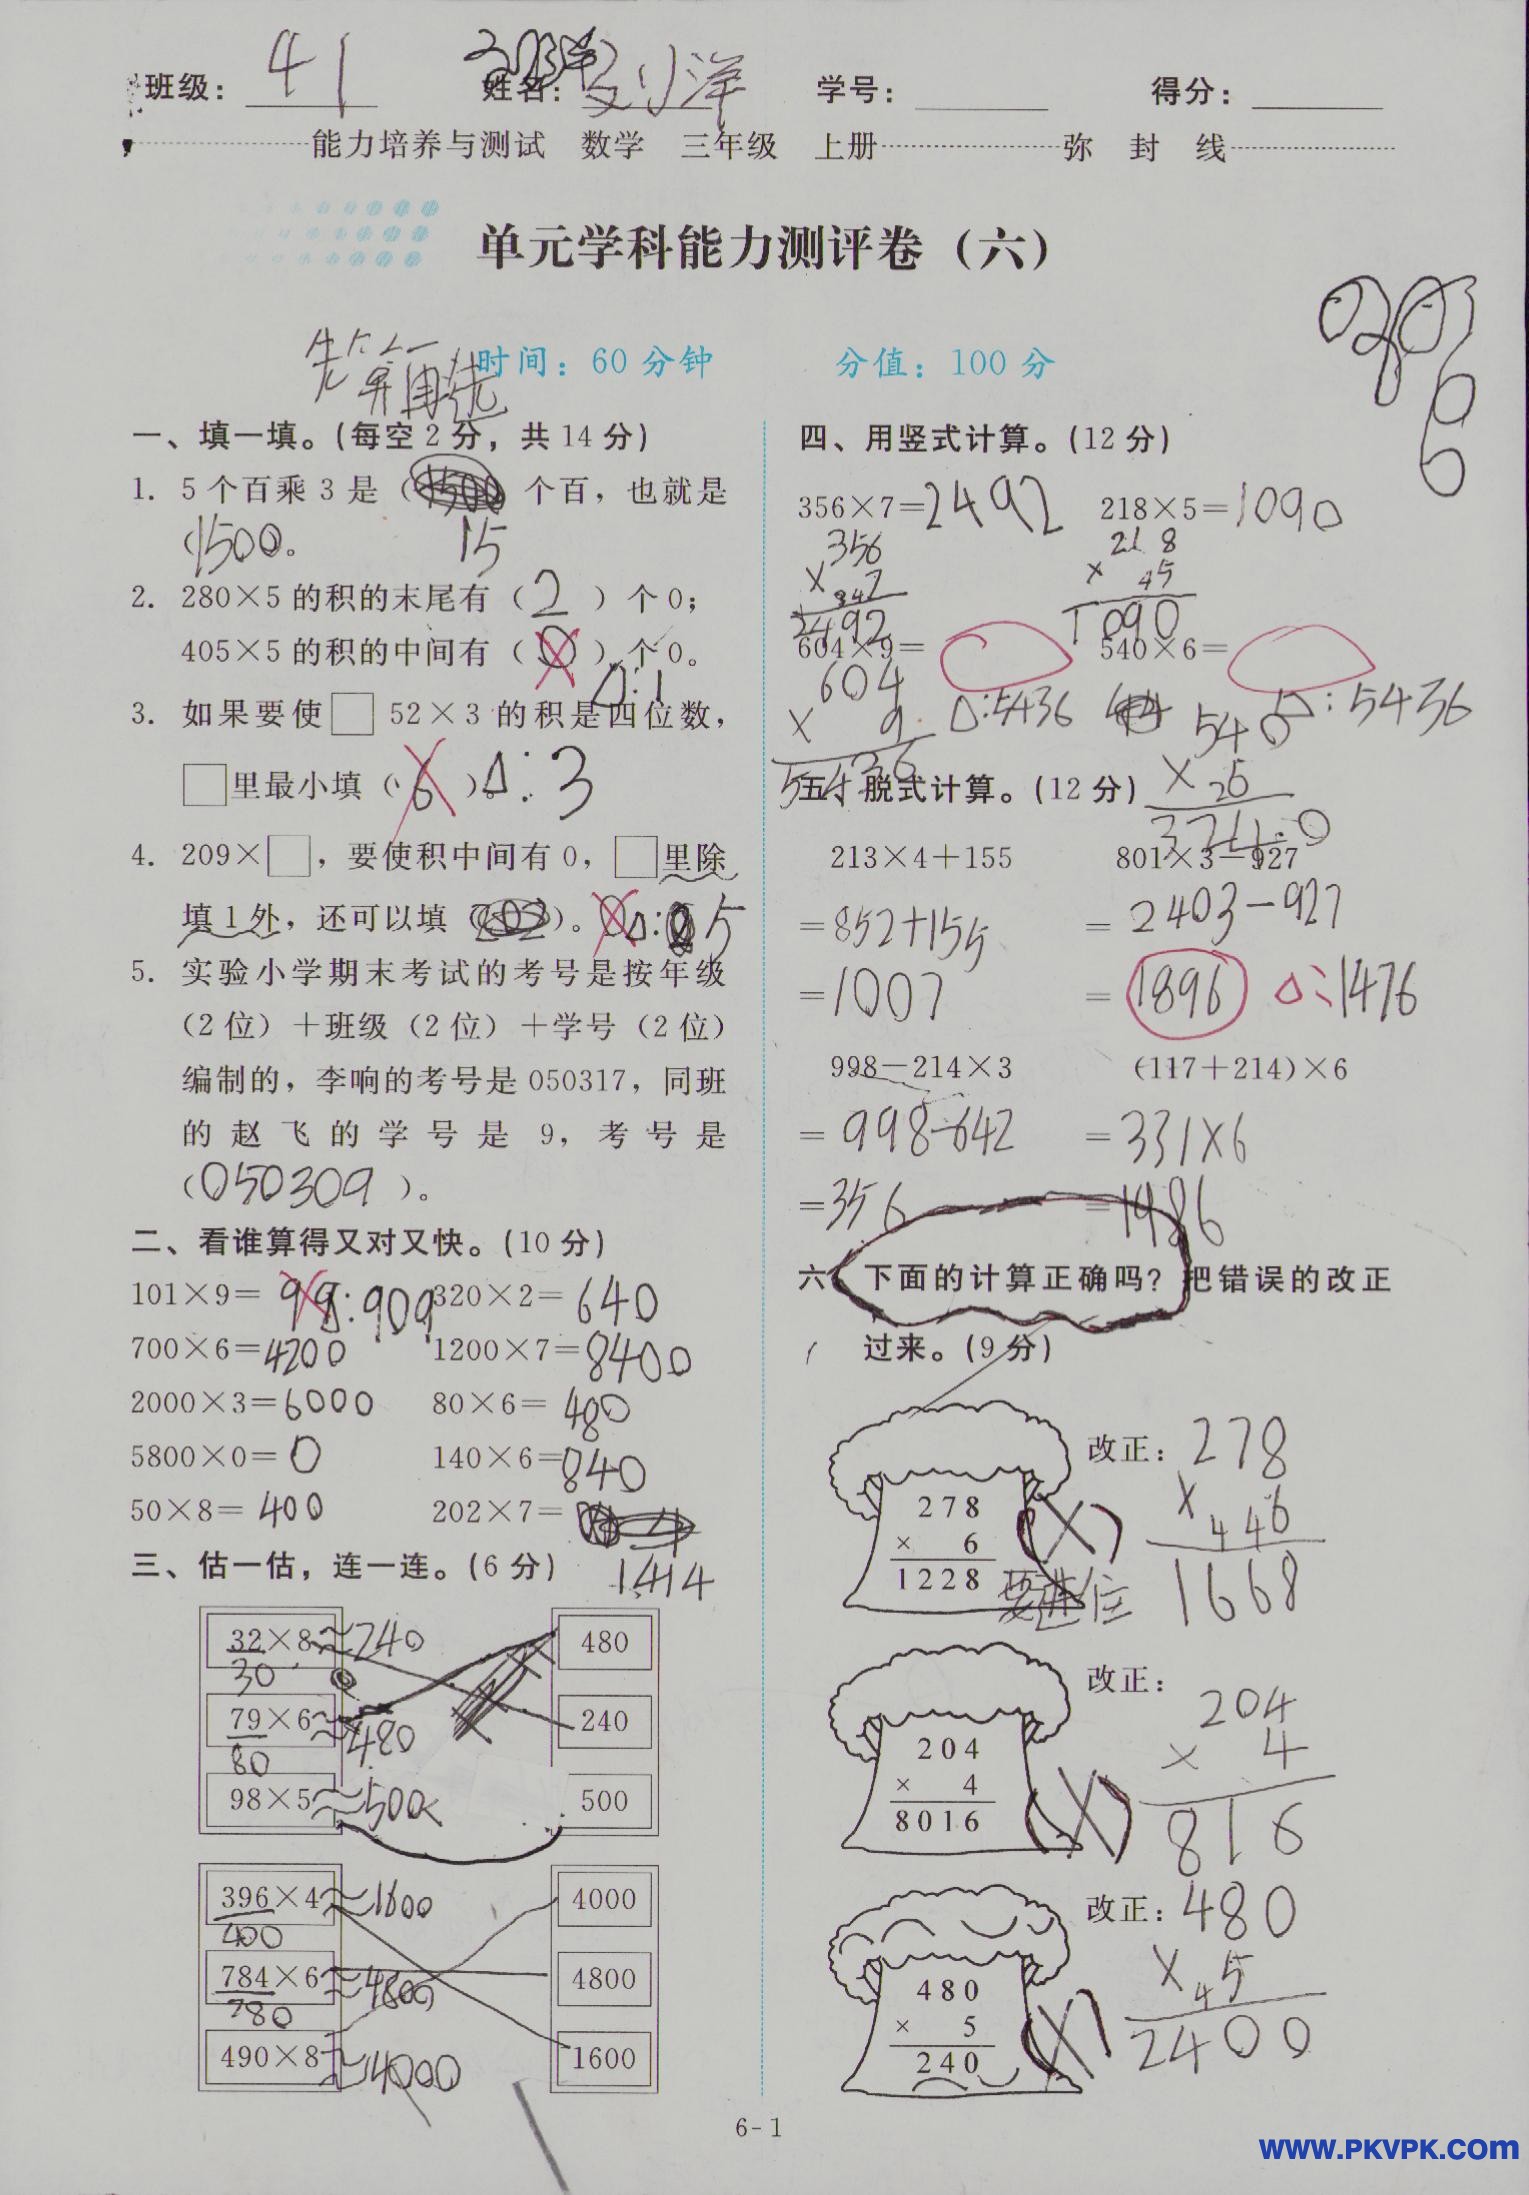 班级： 41 姓名： 刘洋 学号： 得分：
能力培养与测试 数学 三年级 上册 弥 封 线
单元学科能力测评卷（六）
时间：60分钟 分值：100分
先算再连
一、填一填。（每空2分，共14分）
1. 5个百乘3是（ 个百，也就是
（1500。 15
2. 280×5的积的末尾有（ 2 ）个0；
405×5的积的中间有（ 0 ）个0。
△:1
3. 如果要使□52×3的积是四位数，
□里最小填（ 6 ）。△:3
4. 209×□，要使积中间有0，□里除
填1外，还可以填（ ）。 △: 5
5. 实验小学期末考试的考号是按年级
（2位）＋班级（2位）＋学号（2位）
编制的，李响的考号是050317，同班
的赵飞的学号是9，考号是
（050309 ）。
二、看谁算得又对又快。（10分）
101×9= 99 △:909 320×2= 640
700×6=4200 1200×7=8400
2000×3=6000 80×6= 480
5800×0= 0 140×6=840
50×8= 400 202×7=
1414
三、估一估，连一连。（6分）
32×8≈240 480
30
79×6≈480 240
80
98×5≈500 500
396×4≈1600 4000
400
784×6≈4800 4800
780
490×8≈4000 1600
四、用竖式计算。（12分）
356×7=2492 218×5=1090
356 218
× 347 × 45
2492 1090
604×9= 540×6=
604 △:5436 540 △:5436
× 9 × 26
5436 3240
五、脱式计算。（12分）
213×4＋155 801×3－927
=852+155 =2403-927
=1007 =1896 △:1476
998－214×3 （117＋214）×6
=998-642 =331×6
=356 =1986
六、下面的计算正确吗？把错误的改正
过来。（9分）
改正：278
278 × 446
× 6 (×) 1668
1228 要进位
改正：
204 204
× 4 × 4
8016 (×) 816
改正：480
480 × 45
× 5 (×) 2400
240
6-1
www.PKVPK.com